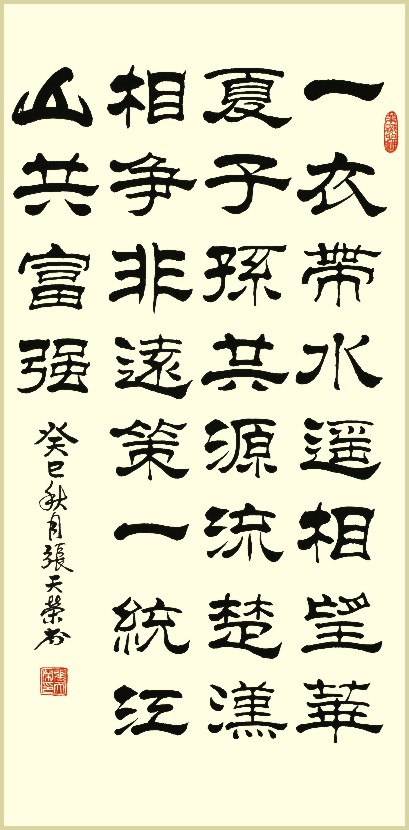 一衣帶水遥相望華
夏子孫共源流楚漢
相争非遠策一統江
山共富强
癸巳秋月張天榮书